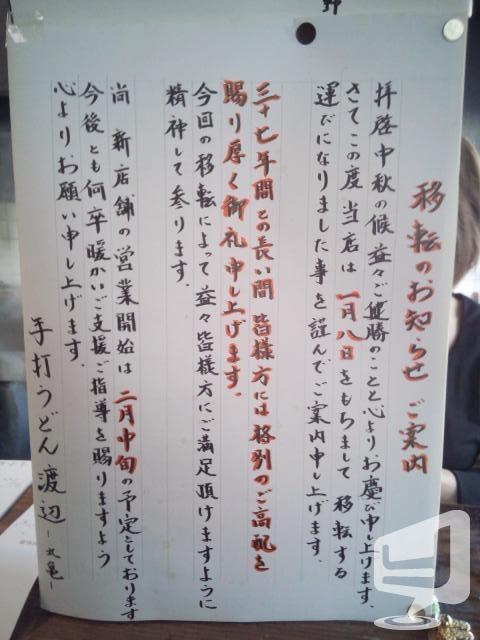 移転のお知らせ ご案内
拝啓 中秋の候 益々ご健勝のことと心よりお慶び申し上げます。
さてこの度当店は 一月八日をもちまして 移転する
運びになりました事を謹んでご案内申し上げます。
三十七年間との長い間 皆様方には格別のご高配を
賜り厚く御礼申し上げます。
今回の移転によって益々皆様方にご満足頂けますように
精神して参ります。
尚 新店舗の営業開始は 二月中旬の予定としております
今後とも何卒暖かいご支援ご指導を賜りますよう
心よりお願い申し上げます。
手打うどん 渡辺 -丸亀-